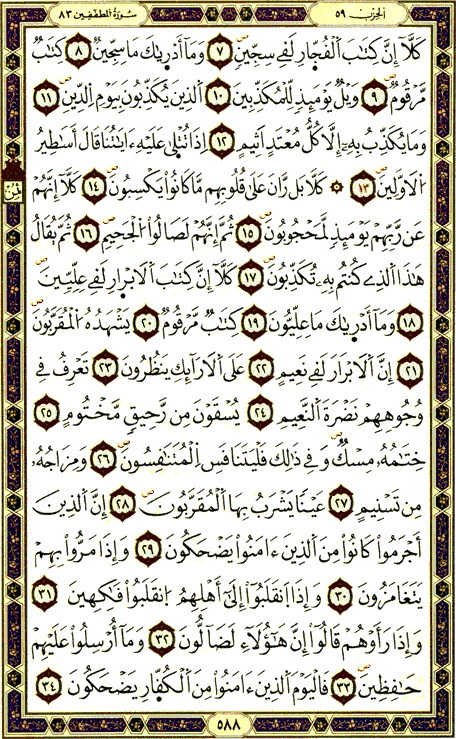 الحزب ٥٩ سورة المطففين ٨٣
كَلَّآ إِنَّ كِتَٰبَ اَ۬لْفُجّ۪ارِ لَفِے سِجِّينٖ ٧ وَمَآ أَدْر۪يٰكَ مَا سِجِّينٞ ٨ كِتَٰبٞ
مَّرْقُومٞ ٩ وَيْلٞ يَوْمَئِذٖ لِّلْمُكَذِّبِينَ ١٠ اَ۬لذِينَ يُكَذِّبُونَ بِيَوْمِ اِ۬لدِّينِ ١١
وَمَا يُكَذِّبُ بِهِۦٓ إِلَّا كُلُّ مُعْتَدٍ اَثِيمٍ ١٢ اِذَا تُتْل۪يٰ عَلَيْهِ ءَايَٰتُنَا قَالَ أَسَٰطِيرُ
اُ۬لَاوَّلِينَ ١٣ ۞ كَلَّا بَل رَّانَ عَلَىٰ قُلُوبِهِم مَّا كَانُواْ يَكْسِبُونَ ١٤ كَلَّآ إِنَّهُمْ
عَن رَّبِّهِمْ يَوْمَئِذٖ لَّمَحْجُوبُونَ ١٥ ثُمَّ إِنَّهُمْ لَصَالُواْ اُ۬لْجَحِيمِ ١٦ ثُمَّ يُقَالُ
هَٰذَا اَ۬لذِے كُنتُم بِهِۦ تُكَذِّبُونَ ١٧ كَلَّآ إِنَّ كِتَٰبَ اَ۬لَابْر۪ارِ لَفِے عِلِّيِّينَ
١٨ وَمَآ أَدْر۪يٰكَ مَا عِلِّيُّونَ ١٩ كِتَٰبٞ مَّرْقُومٞ ٢٠ يَشْهَدُهُ اُ۬لْمُقَرَّبُونَ
٢١ إِنَّ اَ۬لَابْرَارَ لَفِے نَعِيمٍ ٢٢ عَلَى اَ۬لَارَآئِكِ يَنظُرُونَ ٢٣ تَعْرِفُ فِے
وُجُوهِهِمْ نَضْرَةَ اَ۬لنَّعِيمِ ٢٤ يُسْقَوْنَ مِن رَّحِيقٖ مَّخْتُومٍ ٢٥
خِتَٰمُهُۥ مِسْكٞ وَفِے ذَٰلِكَ فَلْيَتَنَافَسِ اِ۬لْمُتَنَٰفِسُونَ ٢٦ وَمِزَاجُهُۥ
مِن تَسْنِيمٍ ٢٧ عَيْناٗ يَشْرَبُ بِهَا اَ۬لْمُقَرَّبُونَ ٢٨ إِنَّ اَ۬لذِينَ
أَجْرَمُواْ كَانُواْ مِنَ اَ۬لذِينَ ءَامَنُواْ يَضْحَكُونَ ٢٩ وَإِذَا مَرُّواْ بِهِمْ
يَتَغَامَزُونَ ٣٠ وَإِذَا اَ۪نقَلَبُوٓاْ إِلَىٰٓ أَهْلِهِمُ اُ۪نقَلَبُواْ فَٰكِهِينَ ٣١
وَإِذَا رَأَوْهُمْ قَالُوٓاْ إِنَّ هَٰٓؤُلَآءِ لَضَآلُّونَ ٣٢ وَمَآ أُرْسِلُواْ عَلَيْهِمْ
حَٰفِظِينَ ٣٣ فَالْيَوْمَ اَ۬لذِينَ ءَامَنُواْ مِنَ اَ۬لْكُفّ۪ارِ يَضْحَكُونَ ٣٤
٥٨٨